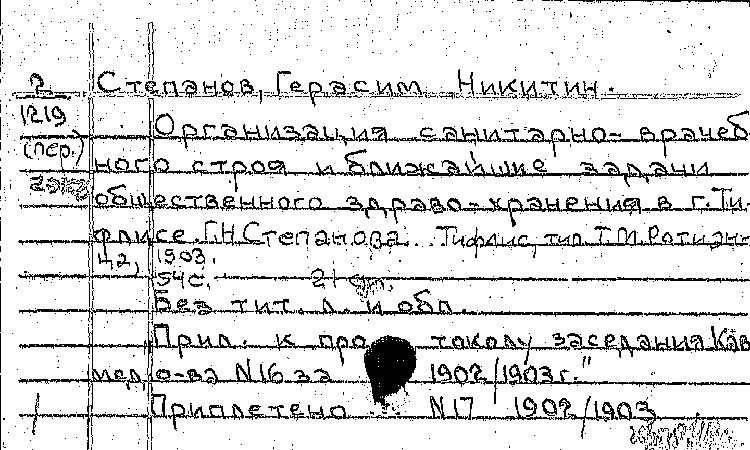 2 Степанов, Герасим Никитин.
1219 Организация санитарно-врачеб
(пер.) ного строя и ближайшие задачи
общественного здраво-хранения в г. Ти-
флисе. Г.Н. Степанова. Тифлис, тип. Т.М. Ротиан-
ца, 1903.
54 с.
Без тит. л. и обл.
Прил. к протоколу заседания Кав
мед о-ва N16 за 1902/1903 г."
Приплетено N17 1902/1903